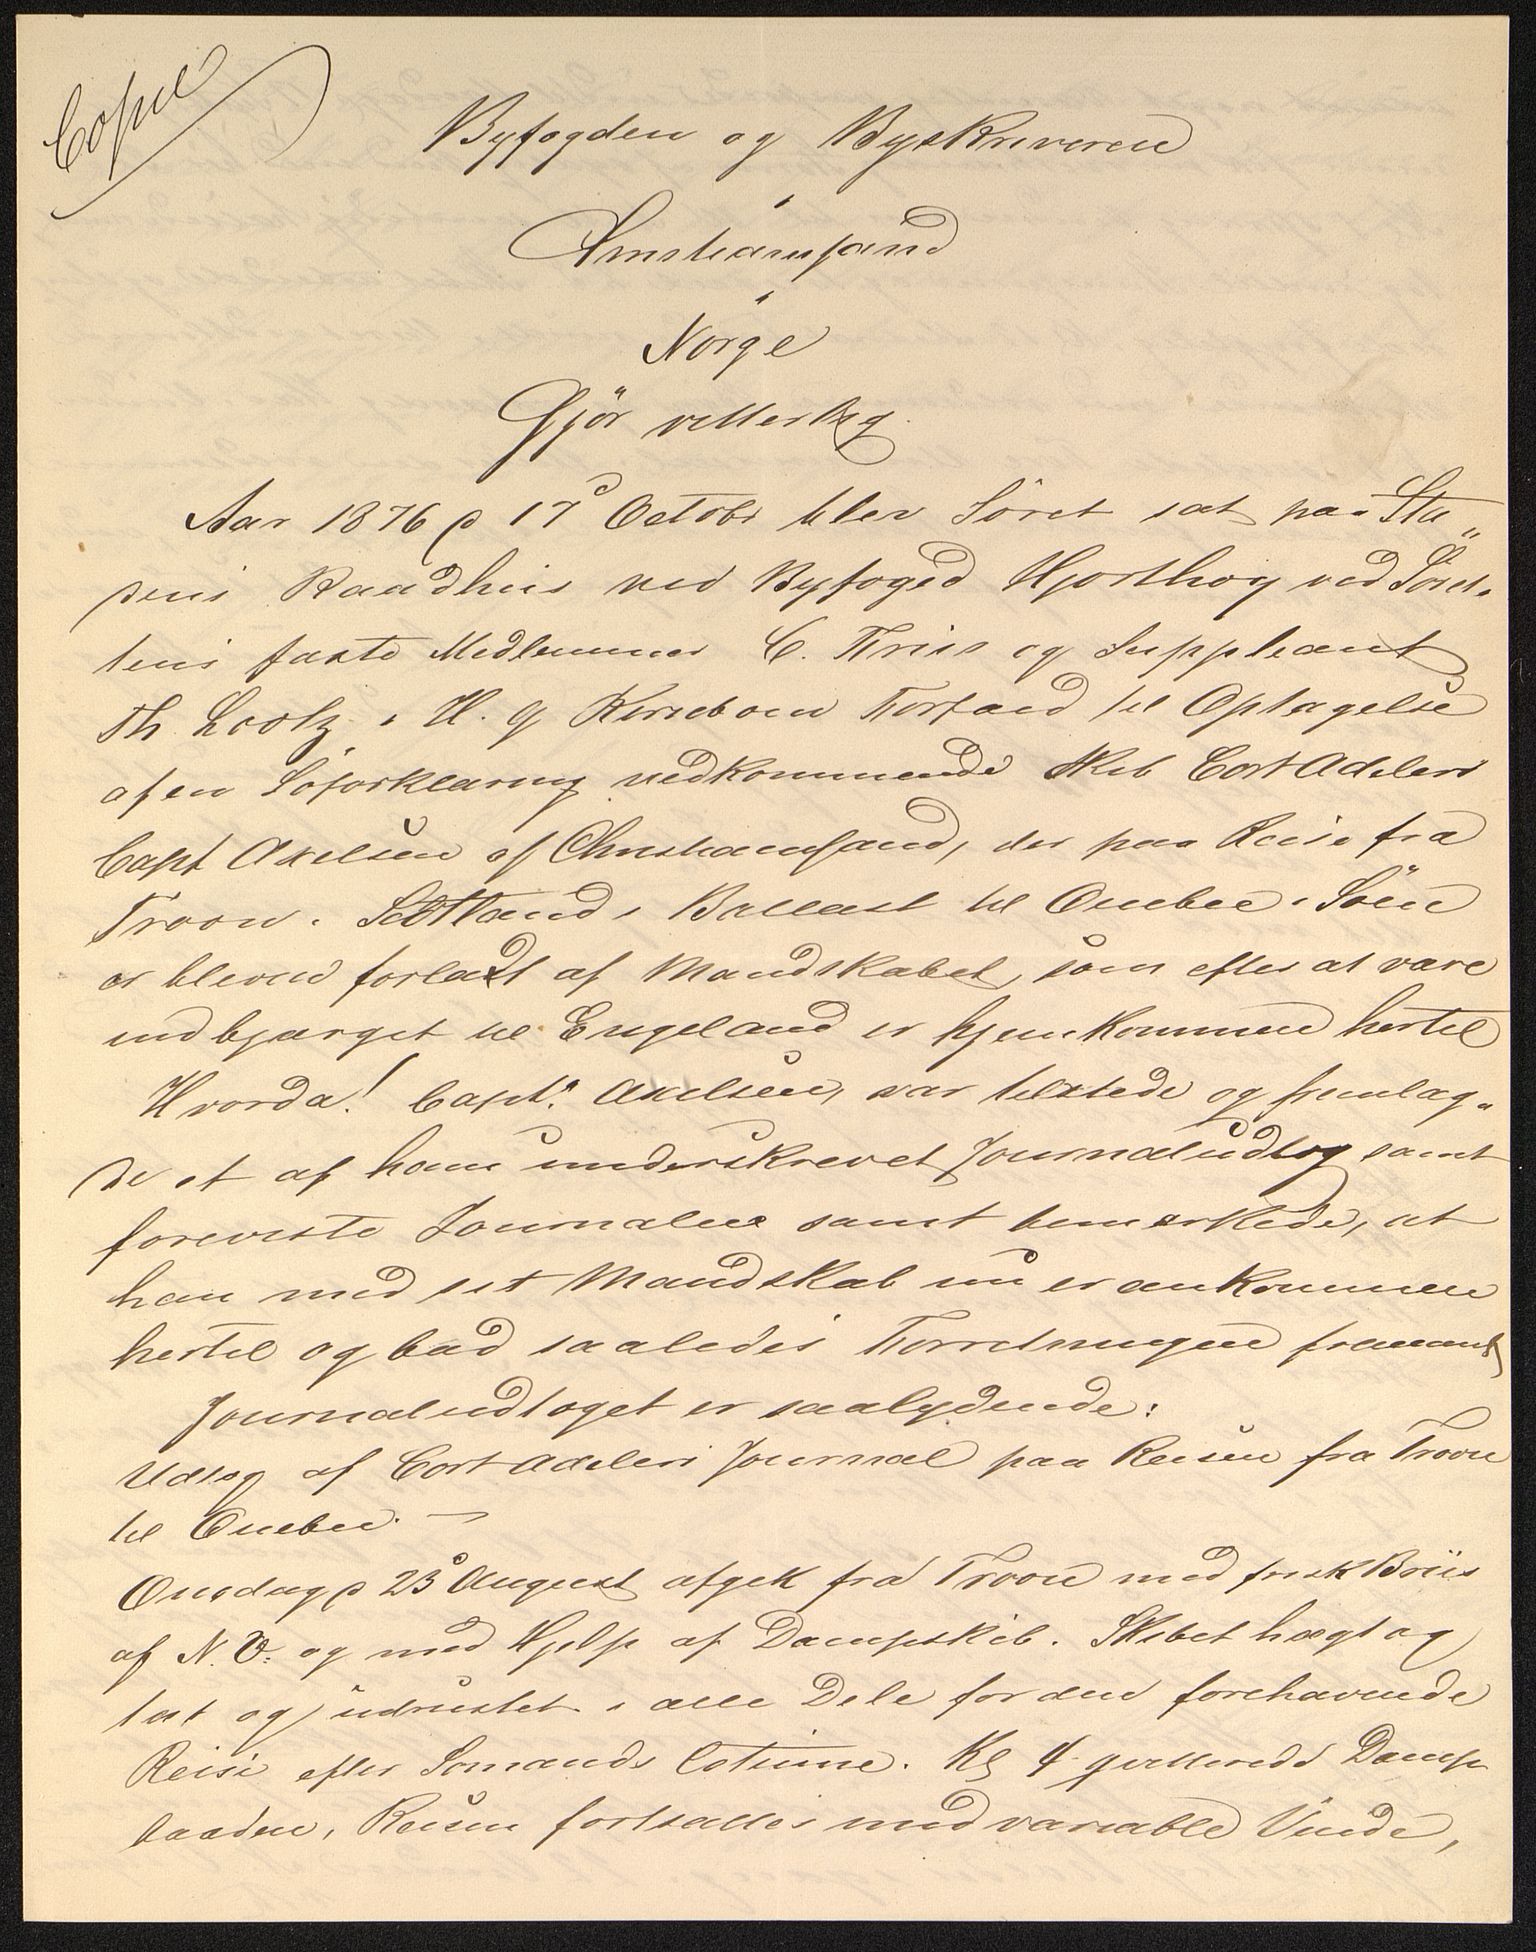 Copie
Byfogden og Byskriveren
i
Christiansand
i
Norge
Gjör vitterligt
Aar 1876 d 17d Octobr blev Söret sat paa Sta„
dens Raadhus ved Byfoged Hjorthøy ved Söret„
tens faste Medlemmer C. Friis og Suppleant
Th Lootz i H. J Kirsebom Forfald til Optagelse
af en Söforklaring vedkommende Skib Cort Adelers
Capt Axelsen af Christiansand, der paa Reise fra
Troon i Scotland i Ballast til Quebec i Söen
er bleven forladt af Mandskabet, som efter at være
indbjærget til Engeland er hjemkommen hertil
Hvorda! Capt: Axelsen, var tilstede og fremlag„
de et af ham underskrevet Journaludtog samt
foreviste Journalen samt bemærkede, at
han med sit Mandskab nu er ankommen
hertil og bad saaledes Forretningen fremmet
Journaludtoget er saalydende:
Udtog af Cort Adelers Journal paa Reisen fra Troon
til Quebec. —
Onsdag d 23d August afgik fra Troon med frisk Briis
af N.V. og med Hjelp af Dampskib. Skibet tægt og
tæt og udrustet i alle Dele for den forehavende
Reise efter Sömands Cotume. Kl 4 qvitterede Damp
baaden, Reisen fortsattes med variable Vinde,